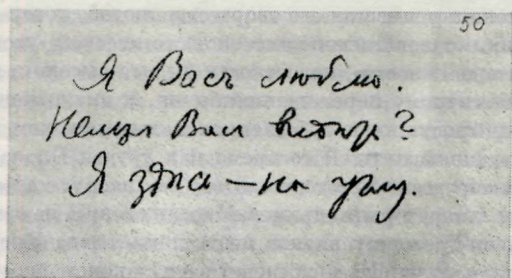 50
Я Васъ люблю.
Нельзя Вас видѣть?
Я здѣсь — на углу.